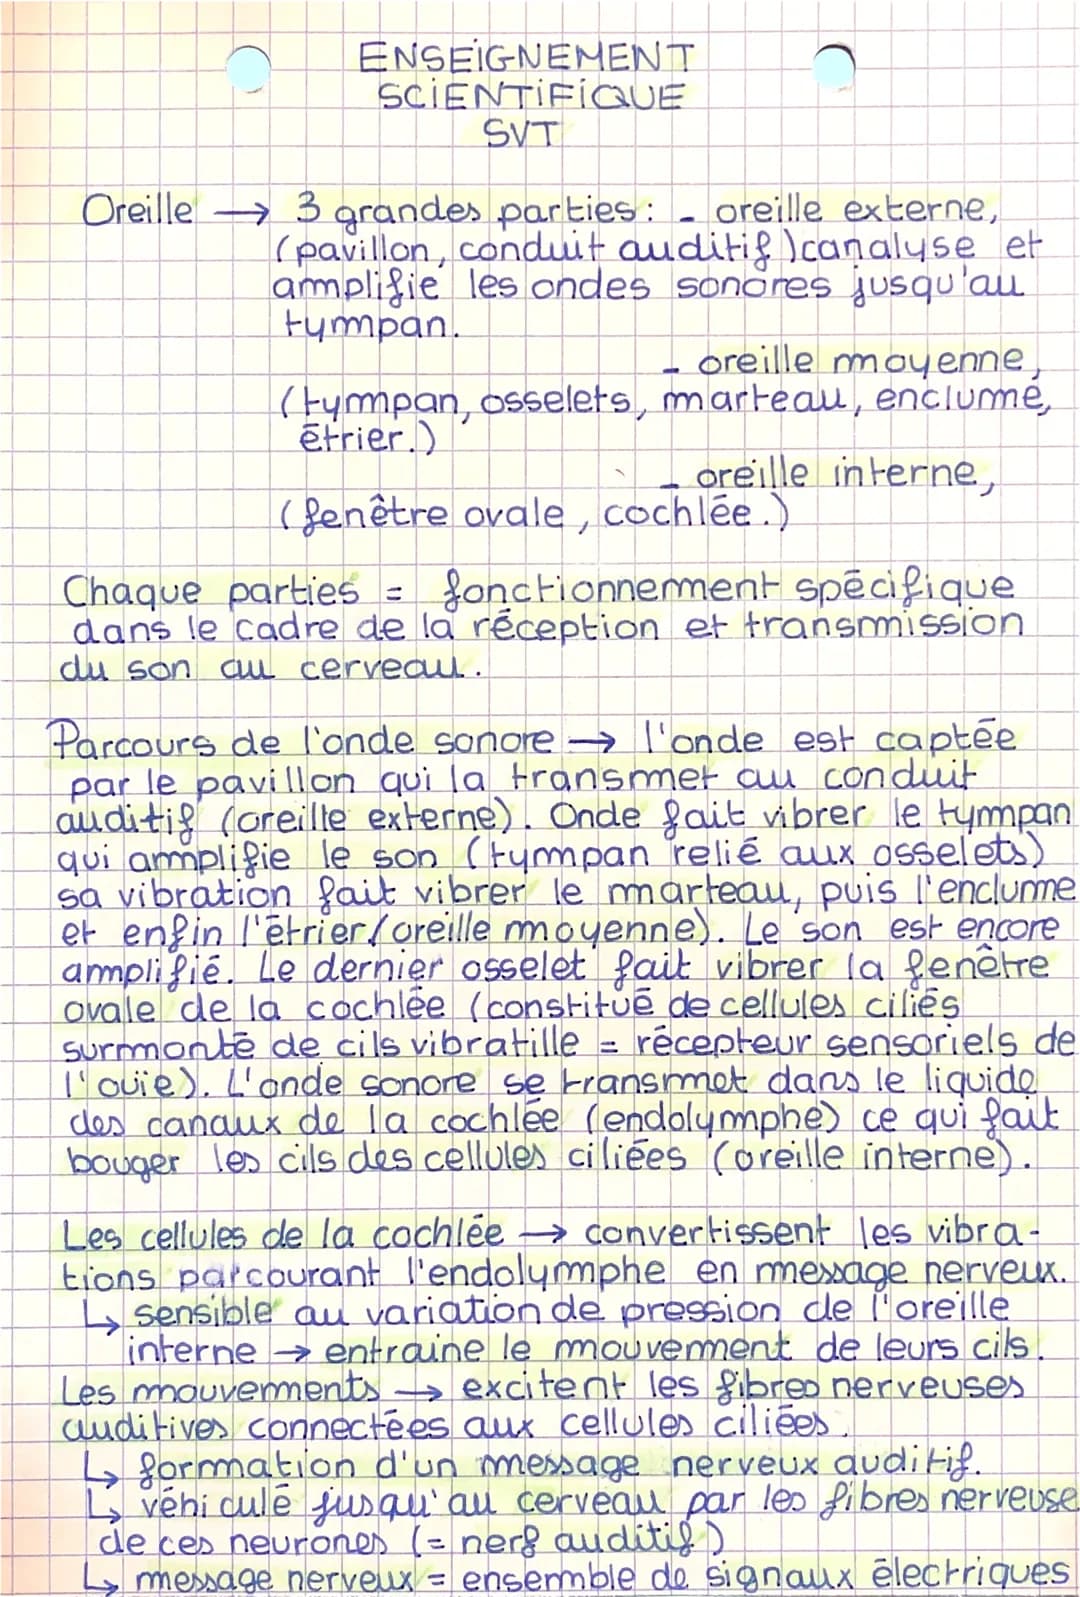 ENSEIGNEMENT
SCIENTIFIQUE
SVT
Oreille → 3 grandes parties : - oreille externe,
(pavillon, conduit auditif) canalyse et
amplifie les ondes sonores jusqu'au
tympan.
- oreille moyenne,
(tympan, osselets, marteau, enclume,
étrier.)
- oreille interne,
(fenêtre ovale, cochlée.)
Chaque parties = fonctionnement spécifique
dans le cadre de la réception et transmission
du son au cerveau.
Parcours de l'onde sonore → l'onde est captée
par le pavillon qui la transmet au conduit
auditif (oreille externe). Onde fait vibrer le tympan
qui amplifie le son (tympan relié aux osselets)
sa vibration fait vibrer le marteau, puis l'enclume
et enfin l'étrier (oreille moyenne). Le son est encore
amplifié. Le dernier osselet fait vibrer la fenêtre
ovale de la cochlée (constitué de cellules ciliés
surmonté de cils vibratille = récepteur sensoriels de
l'ouïe). L'onde sonore se transmet dans le liquide
des canaux de la cochlée (endolymphe) ce qui fait
bouger les cils des cellules ciliées (oreille interne).
Les cellules de la cochlée → convertissent les vibra-
tions parcourant l'endolymphe en message nerveux.
↳ sensible au variation de pression de l'oreille
interne → entraine le mouvement de leurs cils.
Les mouvements → excitent les fibres nerveuses
auditives connectées aux cellules ciliées.
↳ formation d'un message nerveux auditif.
↳ véhiculé jusqu'au cerveau par les fibres nerveuse
de ces neurones (= nerf auditif)
↳ message nerveux = ensemble de signaux électriques